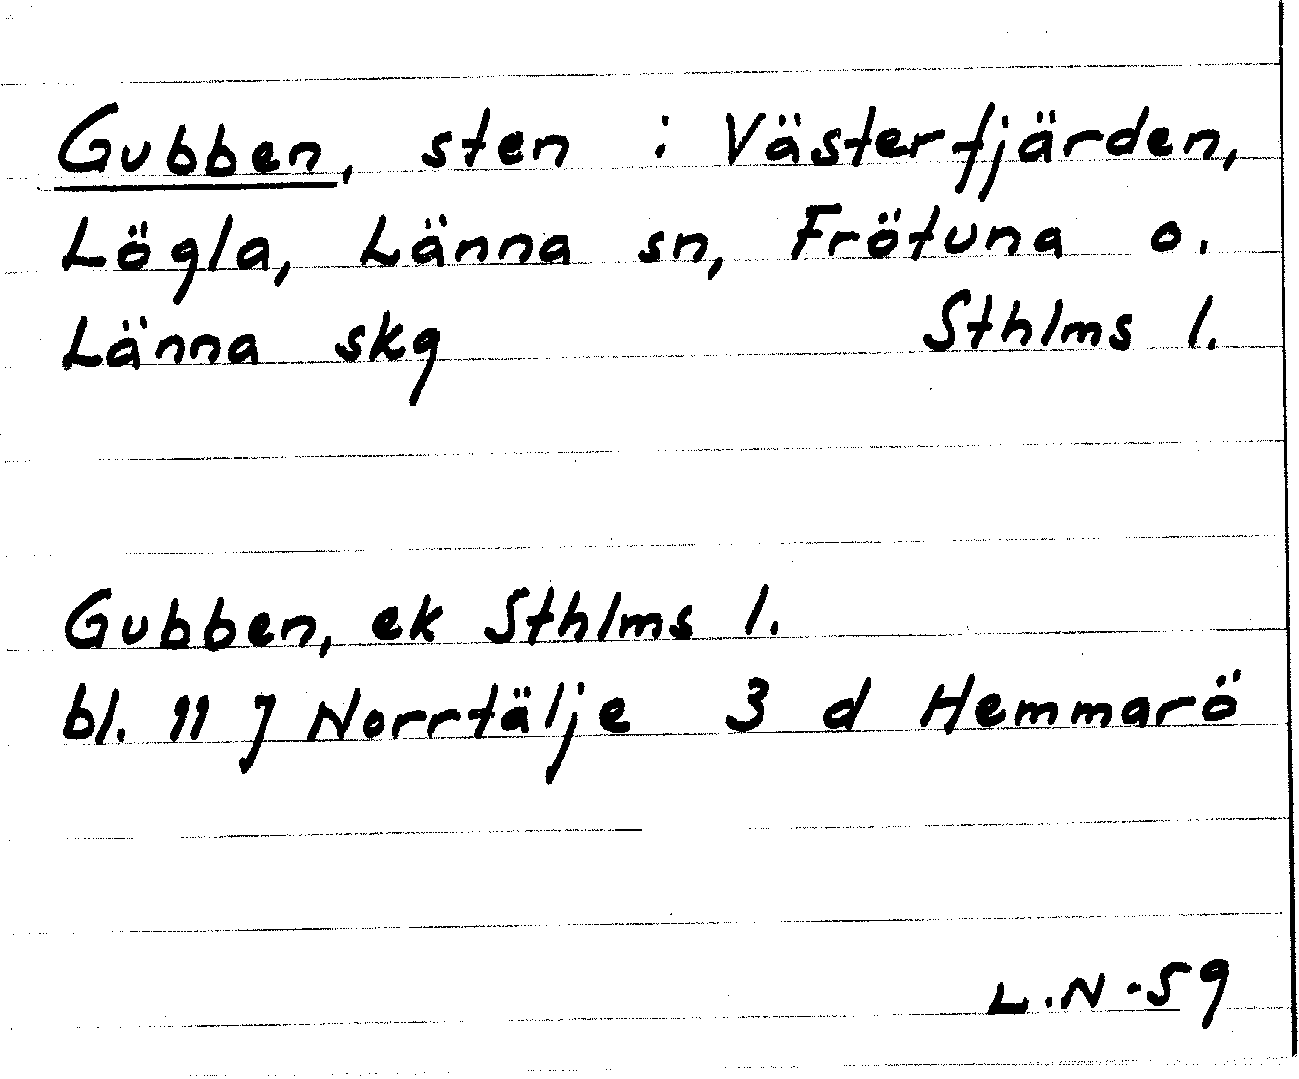 Gubben, sten i Västerfjärden,
Lögla, Länna sn, Frötuna o.
Länna skg Sthlms l.
Gubben, ek Sthlms l.
bl. 11 J Norrtälje 3 d Hemmarö
L.N.59